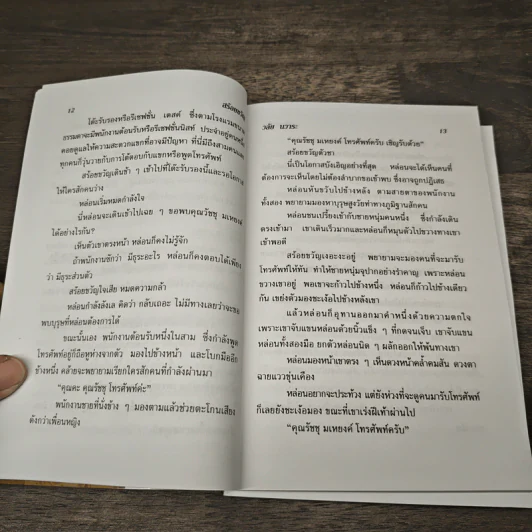 12
สร้อย
โต๊ะรับรองหรือรีเซฟชั่น เดสค์ ซึ่งตามโรงแรม
ธรรมดาจะมีพนักงานต้อนรับหรือรีเซฟชั่นนิสท์ ประจำอยู่
คอยดูแลให้ความสะดวกแขกที่อาจมีปัญหา ที่นี่มีถึงสามคน
ทุกคนก็วุ่นวายกับการโต้ตอบกับแขกหรือพูดโทรศัพท์
สร้อยขวัญเดินช้า ๆ เข้าไปที่โต๊ะรับรองนี้และรอโอกาส
ให้ใครสักคนว่าง
หล่อนเริ่มหมดกำลังใจ
นี่หล่อนจะเดินเข้าไปเฉย ๆ ขอพบคุณรัชชุ มเหยงค์
ได้อย่างไรกัน?
เห็นตัวเขาตรงหน้า หล่อนก็คงไม่รู้จัก
ถ้าพนักงานซักว่า มีธุระอะไร หล่อนก็คงตอบได้เพียง
ว่า มีธุระส่วนตัว
สร้อยขวัญใจเสีย หมดความกล้า
หล่อนกำลังลังเล คิดว่า กลับเถอะ ไม่มีทางเลยว่าจะขอ
พบบุรุษที่หล่อนต้องการได้
ขณะนั้นเอง พนักงานต้อนรับหนึ่งในสาม ซึ่งกำลังพูด
โทรศัพท์อยู่ก็ถือหูห่างจากตัว มองไปข้างหน้า และโบกมือ
ข้างหนึ่ง คล้ายจะพยายามเรียกใครสักคนที่กำลังผ่านมา
“คุณคะ คุณรัชชุ โทรศัพท์ค่ะ”
พนักงานชายที่นั่งข้าง ๆ มองตามแล้วช่วยตะโกนเสียง
ดังกว่าเพื่อนหญิง
วลัย นวาระ
13
“คุณรัชชุ มเหยงค์ โทรศัพท์ครับ เชิญรับด้วย”
สร้อยขวัญตัวชา
นี่เป็นโอกาสบังเอิญอย่างที่สุด หล่อนจะได้เห็นคนที่
ต้องการจะเห็นโดยไม่ต้องลำบากขอเข้าพบ ซึ่งอาจถูกปฏิเสธ
หล่อนหันขวับไปข้างหลัง ตามสายตาของพนักงาน
ทั้งสอง พยายามมองหาบุรุษสูงวัยท่าทางภูมิฐานสักคน
หล่อนชนเปรี้ยงเข้ากับชายหนุ่มคนหนึ่ง ซึ่งกำลังเดิน
ตรงเข้ามา เขาเดินเร็วมากและหล่อนก็หมุนตัวไปขวางทางเขา
เข้าพอดี
สร้อยขวัญเงอะงะอยู่ พยายามจะมองหาคนที่จะมารับ
โทรศัพท์ให้ทัน ทำให้ชายหนุ่มจุปากอย่างรำคาญ เพราะหล่อน
ขวางเขาอยู่ พอเขาจะก้าวไปข้างหนึ่ง หล่อนก็ก้าวไปข้างเดียว
กัน เขย่งตัวมองชะเง้อไปข้างหลังเขา
แล้วหล่อนก็อุทานออกมาคำหนึ่งด้วยความตกใจ
เพราะเขาจับแขนหล่อนด้วยนิ้วแข็ง ๆ ที่กดจนเจ็บ เขาจับแขน
หล่อนทั้งสองมือ ยกตัวหล่อนนิด ๆ ผลักออกให้พ้นทางเขา
หล่อนมองหน้าเขาตรง ๆ เห็นดวงหน้าคล้ำคมสัน ดวงตา
ฉายแววขุ่นเคือง
หล่อนอยากจะประท้วง แต่ยังห่วงที่จะดูคนมารับโทรศัพท์
ก็เลยยังชะเง้อมอง ขณะที่เขาเร่งฝีเท้าผ่านไป
“คุณรัชชุ มเหยงค์ โทรศัพท์ครับ”